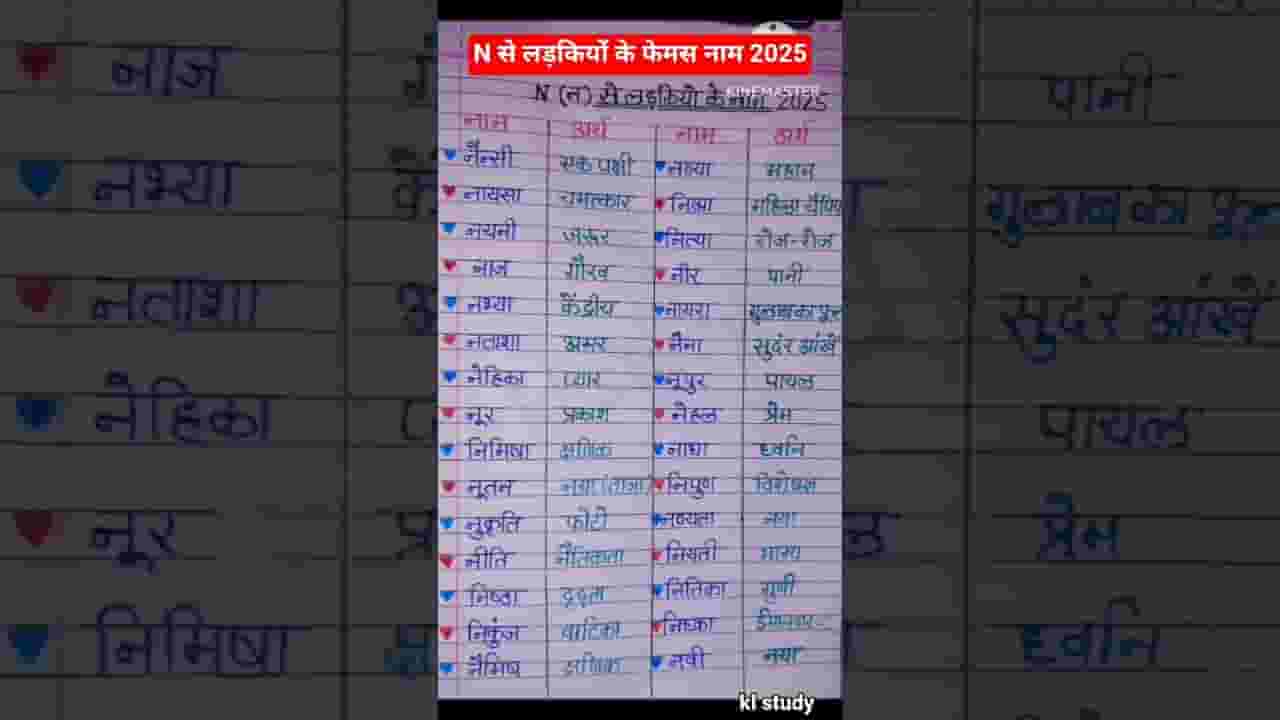 N से लड़कियों के फेमस नाम 2025
KINEMASTER
N (न) से लड़कियो के नाम 2025
नाम अर्थ नाम अर्थ
नैन्सी एक पक्षी नव्या महान
नायसा चमत्कार महिला
नयनी जरूर नित्या रोज-रोज
नाज गौरव नीर पानी
नभ्या केंद्रीय नायरा गुलाब का फूल
नताशा अमर नैना सुदंर आंखें
नेहिका प्यार नूपुर पायल
नूर प्रकाश नेहल प्रेम
निमिषा क्षणिक नाधा ध्वनि
नूतन नया (ताजा) निपुण विशेषज्ञ
नुकृति फोटो नव्यता नया
नीति नैतिकता नियती भाग्य
निष्ठा दृढ़ता नितिका गुणी
निकुंज वाटिका निष्का ईमानदार
नैमिष क्षणिक नवी नया
kl study